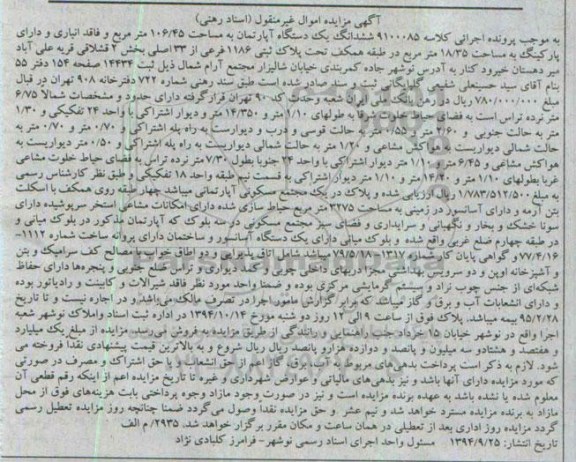 آگهی مزایده اموال غیرمنقول (اسناد رهنی)
به موجب پرونده اجرائی کلاسه ۹۱۰۰۰۸۵ ششدانگ یک دستگاه آپارتمان به مساحت ۱۰۶/۴۵ متر مربع و فاقد انباری و دارای
پارکینگ به مساحت ۱۸/۳۵ متر مربع در طبقه همکف تحت پلاک ثبتی ۱۱۸۶ فرعی از ۳۳ اصلی بخش ۲ قشلاقی قریه علی آباد
میر دهستان خیرود کنار به آدرس نوشهر جاده کمربندی خیابان شالیزار مجتمع آرام شمال ذیل ثبت ۱۴۴۳۴ صفحه ۱۵۴ دفتر ۵۵
بنام آقای سید حسینعلی شفیعی گلپایگانی ثبت و سند صادر شده است طبق سند رهنی شماره ۷۲۲ دفترخانه ۹۰۸ تهران در قبال
مبلغ ۷۸۰/۰۰۰/۰۰۰ ریال در رهن بانک ملی ایران شعبه وحدت کد ۹۰ تهران قرار گرفته دارای حدود و مشخصات شمالا ۶/۷۵
متر نرده تراس است به فضای حیاط خلوت شرقا به طولهای ۱/۱۰ متر و ۱۴/۳۵۰ متر و دیوار اشتراکی با واحد ۲۴ تفکیکی و ۱/۳۰
متر به حالت جنوبی و ۲/۶۰ متر و ۰/۵۵ متر به حالت قوسی و درب و دیواریست به راه پله اشتراکی و ۰/۷۰ متر و ۰/۷۰ متر به
حالت شمالی دیواریست به هواکش مشاعی و ۱/۲۰ متر به حالت شمالی دیواریست به راه پله اشتراکی و ۰/۵۰ متر دیواریست به
هواکش مشاعی و ۶/۴۵ متر و ۱/۱۰ متر دیوار اشتراکی با واحد ۲۴ جنوبا بطول ۷/۳۰ متر نرده تراس به فضای حیاط خلوت مشاعی
غربا بطولهای ۱/۱۰ متر و ۱۴/۲۰ متر و ۱/۱۰ متر دیوار اشتراکی به قسمت نیم طبقه واحد ۱۸ تفکیکی و طبق نظر کارشناس رسمی
به مبلغ ۱/۷۸۳/۵۱۲/۵۰۰ ریال ارزیابی شده و پلاک در یک مجتمع مسکونی آپارتمانی میباشد چهار طبقه روی همکف با اسکلت
بتن آرمه و دارای آسانسور در زمینی به مساحت ۳۲۷۵ متر مربع حیاط سازی شده دارای امکانات مشاعی استخر سرپوشیده دارای
سونا خشک و بخار و نگهبانی و سرایداری و فضای سبز مجتمع مسکونی در سه بلوک که آپارتمان مذکور در بلوک میانی و
در طبقه چهارم ضلع غربی واقع شده و بلوک میانی دارای یک دستگاه آسانسور و ساختمان دارای پروانه ساخت شماره ۱۱۱۲-
۷۷/۴/۱۶ و گواهی پایان کار شماره ۱۳۱۷-۷۹/۵/۳۰ میباشد شامل اتاق پذیرایی و دو اطاق خواب با مصالح کف سرامیک و بتن
و آشپزخانه اوپن و دو سرویس بهداشتی مجزا دربهای داخلی چوبی و کمد دیواری و تراس ضلع جنوبی و پنجره‌ها دارای حفاظ
شبکه‌ای از جنس چوب نراد و سیستم گرمایشی مرکزی بوده و ضمنا واحد مورد نظر فاقد شیرآلات و کابینت و رادیاتور بوده
و دارای انشعابات آب و برق و گاز میباشد که برابر گزارش مامور اجرا در تصرف مالک می‌باشد و در اجاره نیست و تا تاریخ
۹۵/۲/۲۸ بیمه میباشد. پلاک فوق از ساعت ۹ الی ۱۲ روز دو شنبه مورخ ۱۳۹۴/۱۰/۱۴ در اداره ثبت اسناد واملاک نوشهر شعبه
اجرا واقع در نوشهر خیابان ۱۵ خرداد جنب راهنمایی و رانندگی از طریق مزایده به فروش می‌رسد. مزایده از مبلغ یک میلیارد
و هفتصد و هشتادو سه میلیون و پانصد و دوازده هزارو پانصد ریال شروع و به بالاترین قیمت پیشنهادی نقدا فروخته می
شود. لازم به ذکر است پرداخت بدهی‌های مربوط به آب، برق، گاز اعم از حق انشعاب و یا حق اشتراک و مصرف در صورتی
که مورد مزایده دارای آنها باشد و نیز بدهی‌های مالیاتی و عوارض شهرداری و غیره تا تاریخ مزایده اعم از اینکه رقم قطعی آن
معلوم شده یا نشده باشد به عهده برنده مزایده است و نیز در صورت وجود مازاد وجوه پرداختی بابت هزینه‌های فوق از محل
مازاد به برنده مزایده مسترد خواهد شد و نیم عشر و حق مزایده نقدا وصول می‌گردد ضمنا چنانچه روز مزایده تعطیل رسمی
گردد مزایده روز اداری بعد از تعطیلی در همان ساعت و مکان مقرر برگزار خواهد شد. ۲۹۳۵/م الف
تاریخ انتشار: ۱۳۹۴/۹/۲۵ مسئول واحد اجرای اسناد رسمی نوشهر- فرامرز کلبادی نژاد